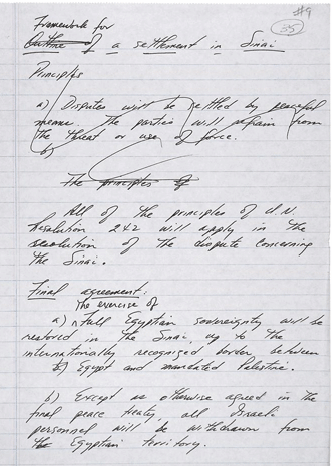 #9
35
Framework for
Outline of a settlement in Sinai
Principles
a) Disputes will be settled by peaceful
means. The parties will refrain from
the threat or use of force.
b)
The principles of
All of the principles of U.N.
Resolution 242 will apply in the
resolution of the dispute concerning
the Sinai.
Final agreement:
The exercise of
a) Full Egyptian sovereignty will be
restored in the Sinai, up to the
internationally recognized border between
b) Egypt and mandated Palestine.
b) Except as otherwise agreed in the
final peace treaty all Israeli
personnel will be withdrawn from
the Egyptian territory.